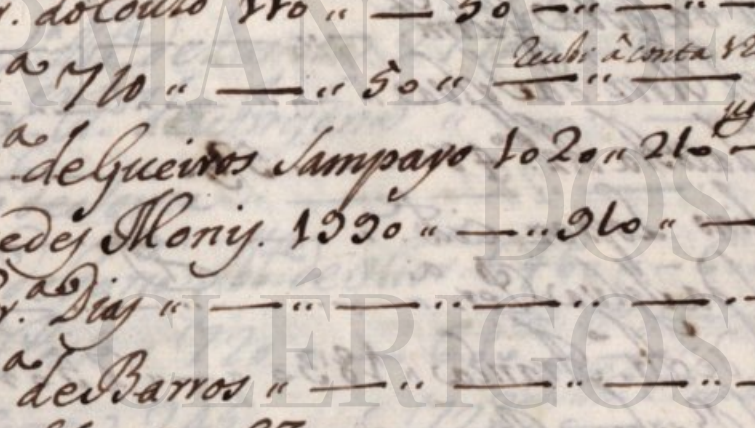 r. do Couto 110 " — 50 — " — "
Recebi â conta
ª 710 " — " 50 " — " —
ª de Gueiros Sampayo 1020 " 210 —
edes Moniz. 1990 " — " 910 " —
r.ª Dias " — " — " — " — "
ª de Barros " — " — " — "
IRMANDADE
DOS
CLÉRIGOS